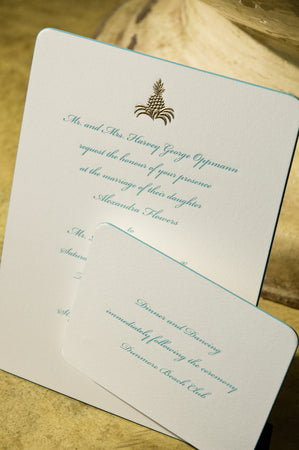 Mr. and Mrs. Harvey George Oppmann
request the honour of your presence
at the marriage of their daughter
Alexandra Flowers
to
Mr.
Saturd
Dinner and Dancing
immediately following the ceremony
Dunmore Beach Club